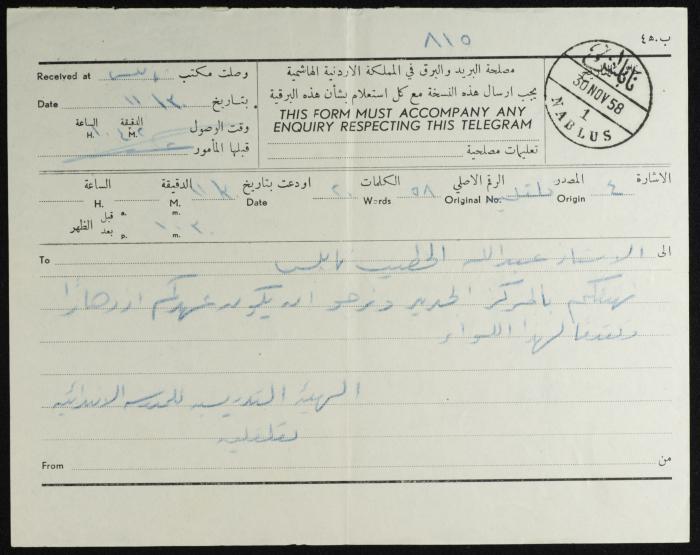 ٨١٥
ب.ه٤
Received at نابلس وصلت مكتب
Date ١١/٣٠ بتاريخ
الساعة H. الدقيقة M. وقت الوصول
قبلها المأمور
مصلحة البريد والبرق في المملكة الاردنية الهاشمية
يجب ارسال هذه النسخة مع كل استعلام بشأن هذه البرقية
THIS FORM MUST ACCOMPANY ANY
ENQUIRY RESPECTING THIS TELEGRAM
تعليمات مصلحية
نابلس
30 NOV 58
1
NABLUS
الاشارة ٤ المصدر Origin قلقيلية الرقم الاصلي Original No. ٥٨ الكلمات Words ٢٠ اودعت بتاريخ Date ١١/٣٠ الدقيقة M. الساعة H.
قبل a. m.
بعد p. m. الظهر ١٠٣٠
To الى
الاستاذ عبدالله الخطيب نابلس
نهنئكم بالمركز الجديد ونرجو ان يكون عهدكم ازدهارا
وتقدما لهذا اللواء
الهيئة التدريسية للمدرسة الابتدائية
بقلقيلية
From من